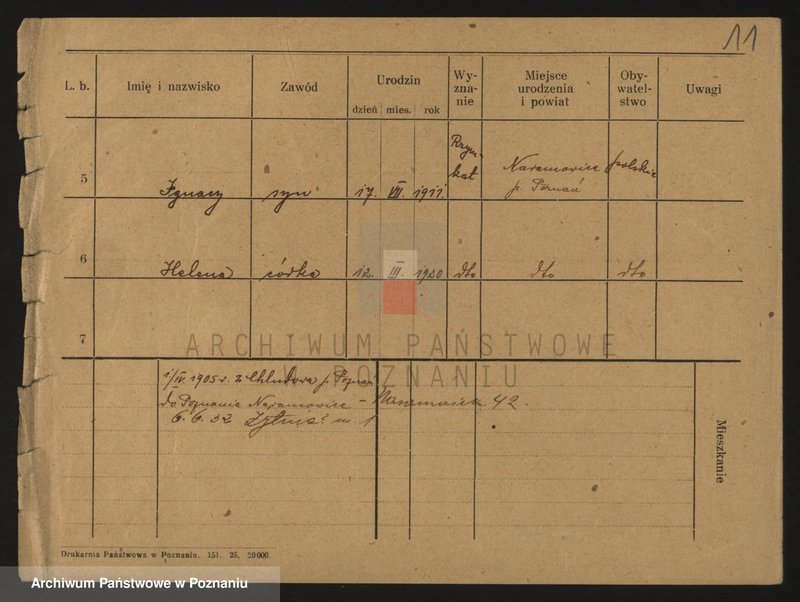 11
L. b. Imię i nazwisko Zawód Urodzin Wy-zna-nie Miejsce urodzenia i powiat Oby-watel-stwo Uwagi
dzień mies. rok
5 Ignacy syn 17. VII. 1911. Rzym-kat Naramowice p. Poznań polskie
6 Helena córka 12. III. 1920 dto dto dto
7
ARCHIWUM PAŃSTWOWE
W POZNANIU
1/IV. 1905 r. z Chludowa p. Poznań
do Poznania Naramowice – 42.
6. 6. 32 m. 1
Mieszkanie
Drukarnia Państwowa w Poznaniu. 151. 25. 20000.
Archiwum Państwowe w Poznaniu